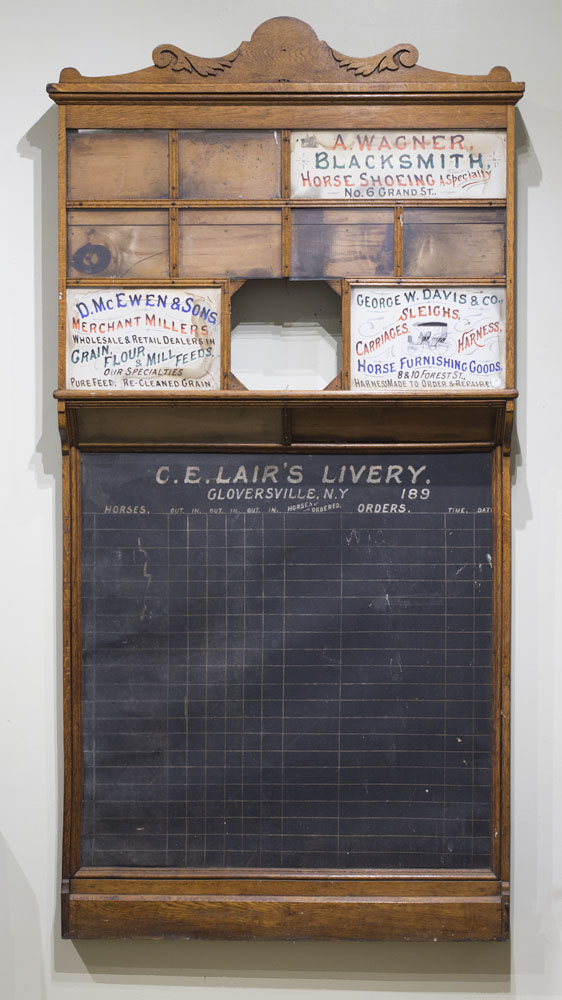 A. WAGNER,
BLACKSMITH,
HORSE SHOEING A Specialty
No. 6 GRAND ST.,
D. McEWEN & SONS,
MERCHANT MILLERS,
WHOLESALE & RETAIL DEALERS IN
GRAIN, FLOUR & MILL FEEDS,
OUR SPECIALTIES
PURE FEED, RE-CLEANED GRAIN,
GEORGE W. DAVIS & CO.,
SLEIGHS,
CARRIAGES, HARNESS,
HORSE FURNISHING GOODS,
8 & 10 FOREST ST.,
HARNESS MADE TO ORDER & REPAIRED
C. E. LAIR'S LIVERY.
GLOVERSVILLE, N.Y 189
HORSES. OUT. IN. OUT. IN. OUT. IN. HORSES ORDERED. ORDERS. TIME. DAT